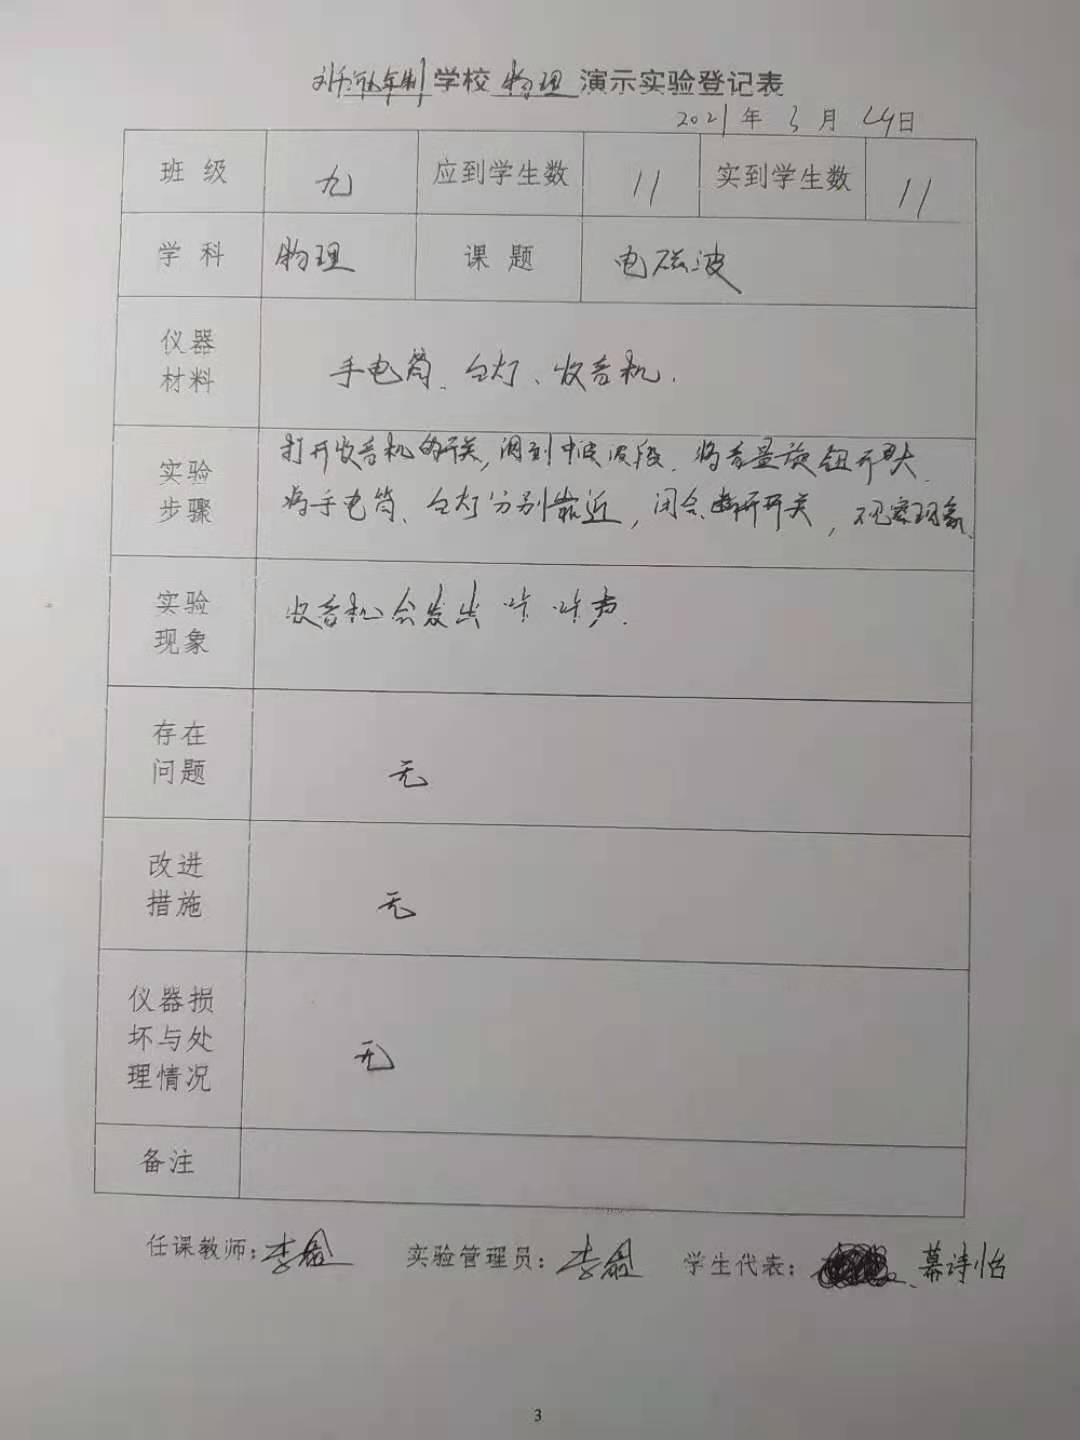 九年制学校 物理 演示实验登记表
2021年3月24日
班级 九 应到学生数 11 实到学生数 11
学科 物理 课题 电磁波
仪器
材料
手电筒、台灯、收音机.
实验
步骤
打开收音机的开关,调到中波波段.将音量旋钮开大.
将手电筒、台灯分别靠近,闭合断开开关,观察现象.
实验
现象
收音机会发出咔咔声.
存在
问题
无
改进
措施
无
仪器损
坏与处
理情况
无
备注
任课教师:李 实验管理员:李 学生代表: 慕诗怡
3